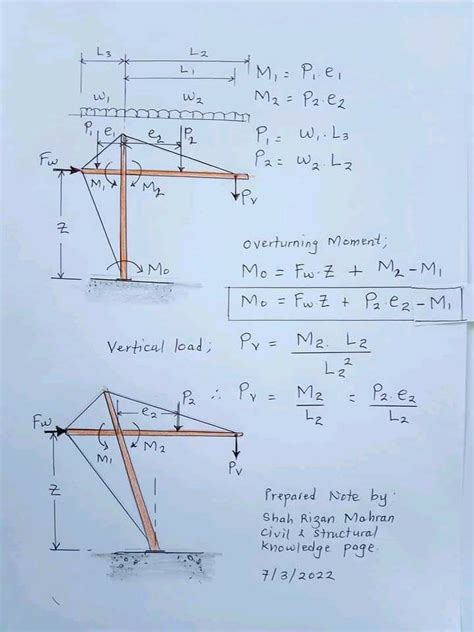 L3 L2
L1
w1 w2
P1 e1 e2 P2
Fw
M1 M2
Pv
Z
Mo
M1 = P1.e1
M2 = P2.e2
P1 = w1.L3
P2 = w2.L2
Overturning Moment;
Mo = Fw.Z + M2-M1
Mo = Fw.Z + P2.e2-M1
Vertical load; Pv = M2. L2 / L2²
∴ Pv = M2 / L2 = P2.e2 / L2
e2 P2
Fw
M1 M2
Pv
Z
Prepared Note by:
Shah Rizan Mahran
Civil & Structural
Knowledge page.
7/3/2022